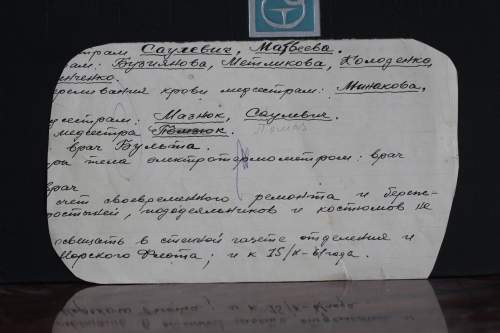 трам Саулевич, Матвеева.
рам: Бузиянова, Метликова, Холоденко,
нченко.
реливания крови медсестрам: Минакова,
дсестрам: Мазнюк, Саулевич.
медсестра
врач Бульба.
ры тела электротермометром: врач
врач
счет своевременного ремонта и береж-
ростыней, пододеяльников и костюмов не
освещать в стенной газете отделения и
Морского Флота; и к 15/X-61 года.